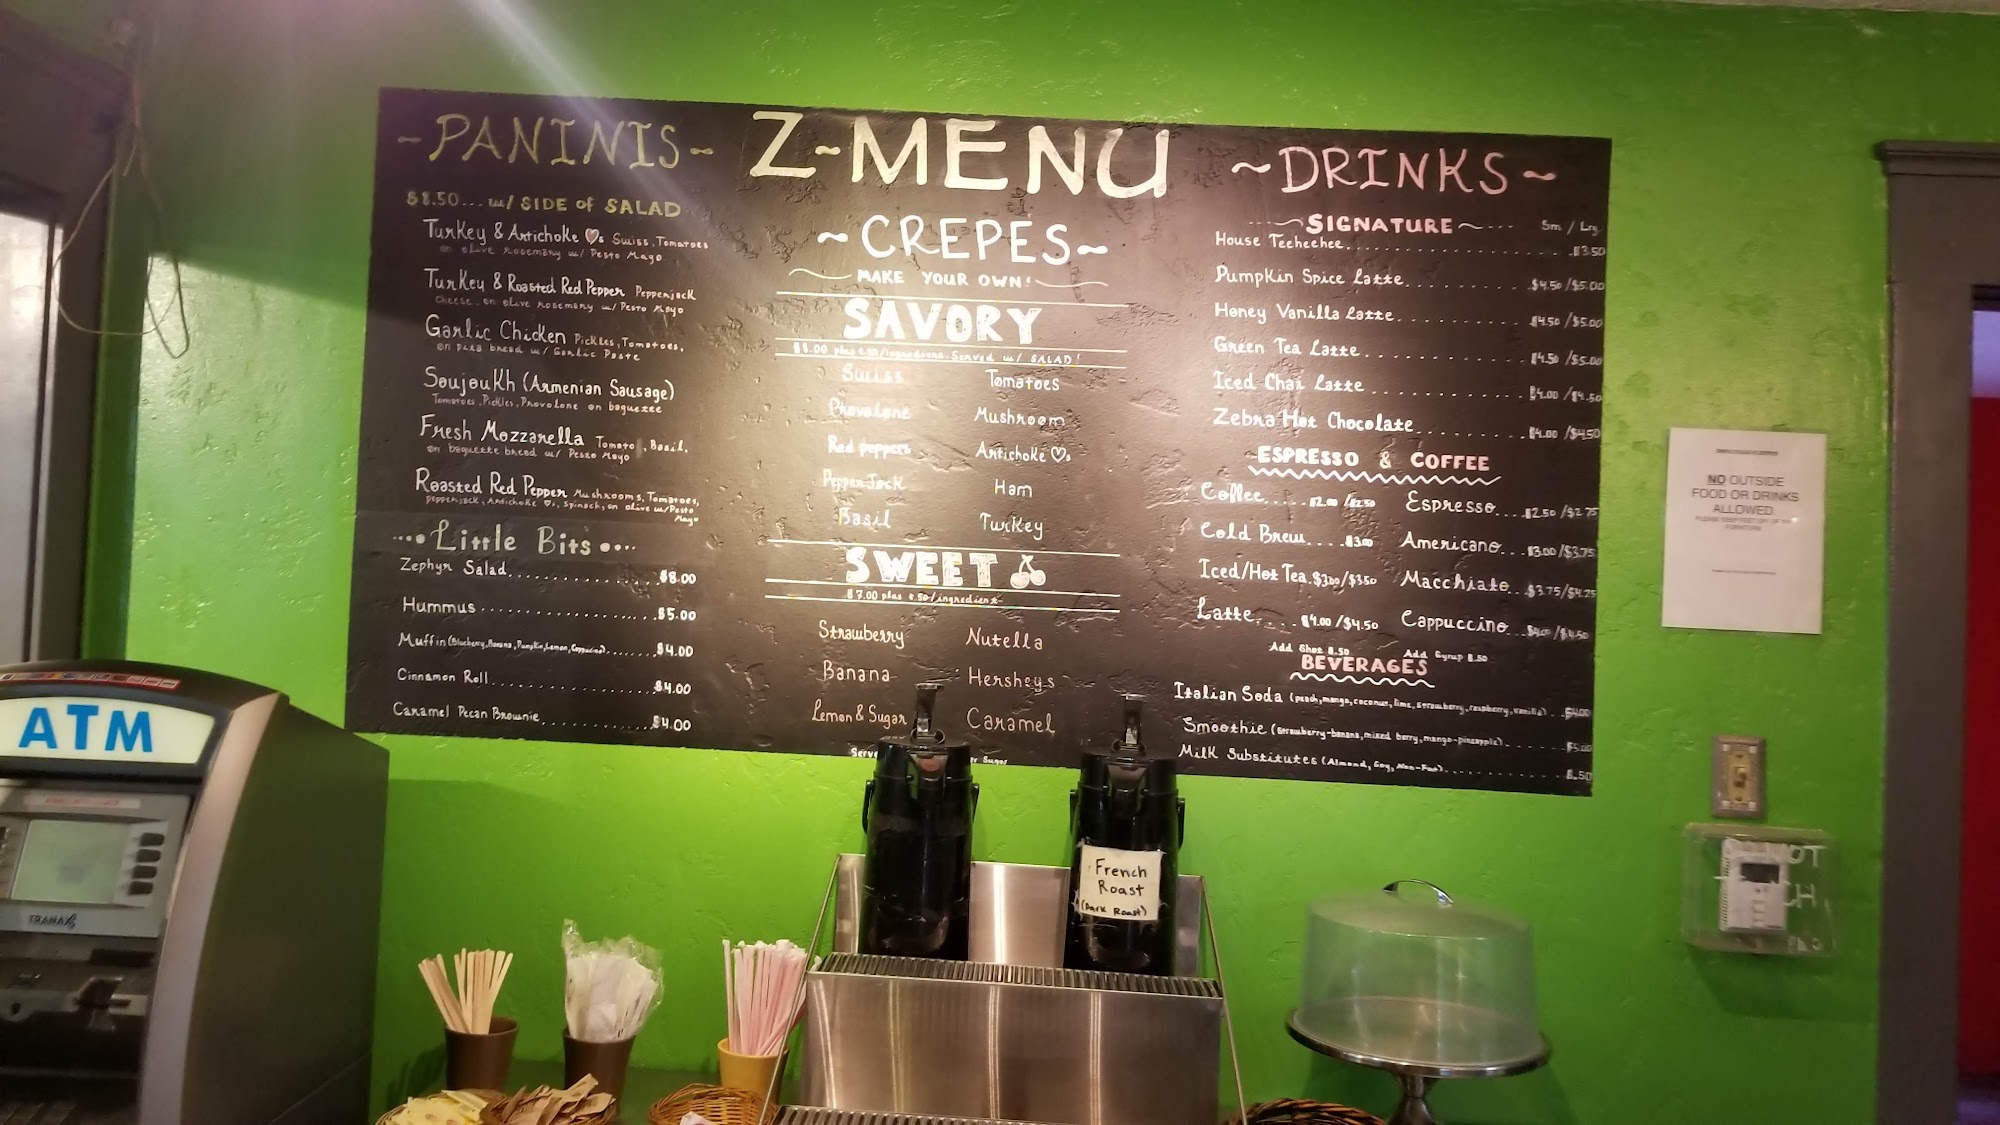 ~PANINIS~
$8.50... w/ SIDE of SALAD
Turkey & Artichoke ♡s Swiss, Tomatoes
on olive rosemary w/ Pesto Mayo
Turkey & Roasted Red Pepper Pepperjack
Cheese, on olive rosemary w/ Pesto Mayo
Garlic Chicken Pickles, Tomatoes,
on pita bread w/ Garlic Paste
Soujoukh (Armenian Sausage)
Tomatoes, Pickles, Provolone on baguette
Fresh Mozzarella Tomato, Basil,
on baguette bread w/ Pesto Mayo
Roasted Red Pepper Mushrooms, Tomatoes,
pepperjack, Artichoke ♡s, Spinach, on olive w/ Pesto
Mayo
Little Bits
Zephyr Salad $8.00
Hummus $5.00
Muffin (Blueberry, Banana, Pumpkin, Lemon, Cappucino) $4.00
Cinnamon Roll $4.00
Caramel Pecan Brownie $4.00
Z~MENU
~CREPES~
MAKE YOUR OWN!
SAVORY
$8.00 plus €.50/ingredient. Served w/ SALAD!
Swiss Tomatoes
Provolone Mushroom
Red peppers Artichoke ♡s
PepperJack Ham
Basil Turkey
SWEET
$7.00 plus €.50/ingredient
Strawberry Nutella
Banana Hersheys
Lemon & Sugar Caramel
Serve
Sugar
~DRINKS~
SIGNATURE Sm / Lrg
House Teeheehee $3.50
Pumpkin Spice Latte $4.50/$5.00
Honey Vanilla Latte $4.50/$5.00
Green Tea Latte $4.50/$5.00
Iced Chai Latte $4.00/$4.50
Zebra Hot Chocolate $4.00/$4.50
ESPRESSO & COFFEE
Coffee $2.00/$2.50 Espresso $2.50/$2.75
Cold Brew $3.00 Americano $3.00/$3.75
Iced/Hot Tea $3.00/$3.50 Macchiato $3.75/$4.25
Latte $4.00/$4.50 Cappuccino $4.00/$4.50
Add Shot $.50 Add Syrup $.50
BEVERAGES
Italian Soda (peach, mango, coconut, lime, strawberry, raspberry, vanilla) $4.00
Smoothie (strawberry-banana, mixed berry, mango-pineapple) $5.00
Milk Substitutes (Almond, Soy, Non-Fat) $.50
NO OUTSIDE
FOOD OR DRINKS
ALLOWED
ATM
TRANAX
French
Roast
(Dark Roast)